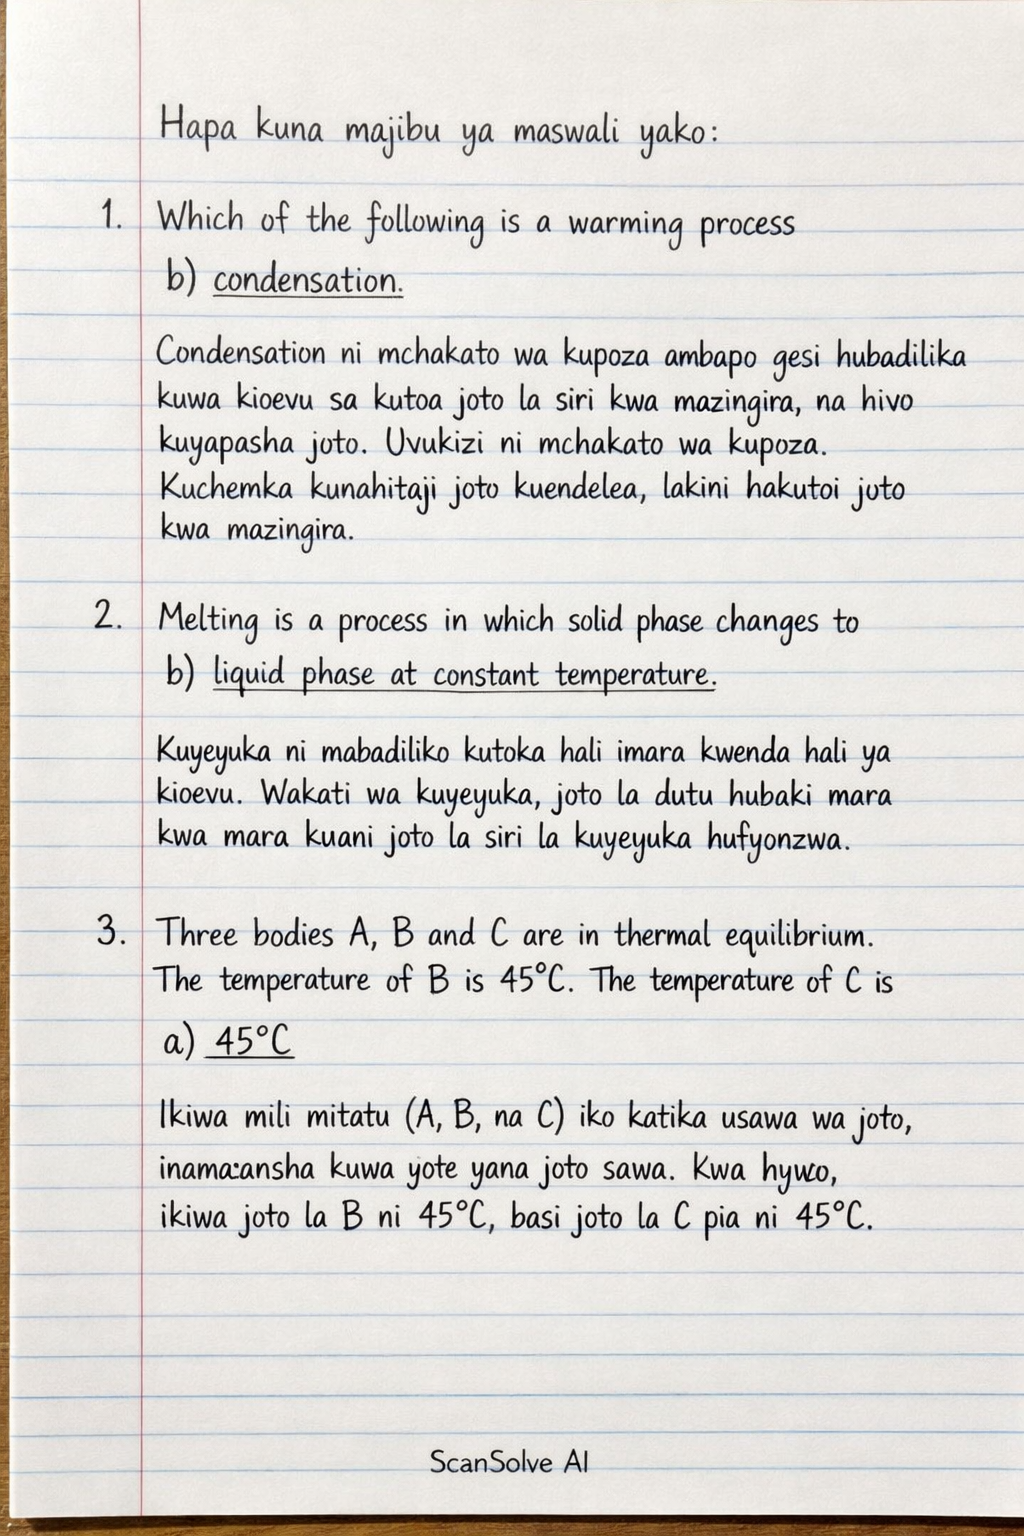 Hapa kuna majibu ya maswali yako:
1. Which of the following is a warming process
b) condensation.
Condensation ni mchakato wa kupoza ambapo gesi hubadilika
kuwa kioevu sa kutoa joto la siri kwa mazingira, na hivo
kuyapasha joto. Uvukizi ni mchakato wa kupoza.
Kuchemka kunahitaji joto kuendelea, lakini hakutoi joto
kwa mazingira.
2. Melting is a process in which solid phase changes to
b) liquid phase at constant temperature.
Kuyeyuka ni mabadiliko kutoka hali imara kwenda hali ya
kioevu. Wakati wa kuyeyuka, joto la dutu hubaki mara
kwa mara kuani joto la siri la kuyeyuka hufyonzwa.
3. Three bodies A, B and C are in thermal equilibrium.
The temperature of B is 45°C. The temperature of C is
a) 45°C
Ikiwa mili mitatu (A, B, na C) iko katika usawa wa joto,
kuwa yote yana joto sawa. Kwa
ikiwa joto la B ni 45°C, basi joto la C pia ni 45°C.
ScanSolve AI